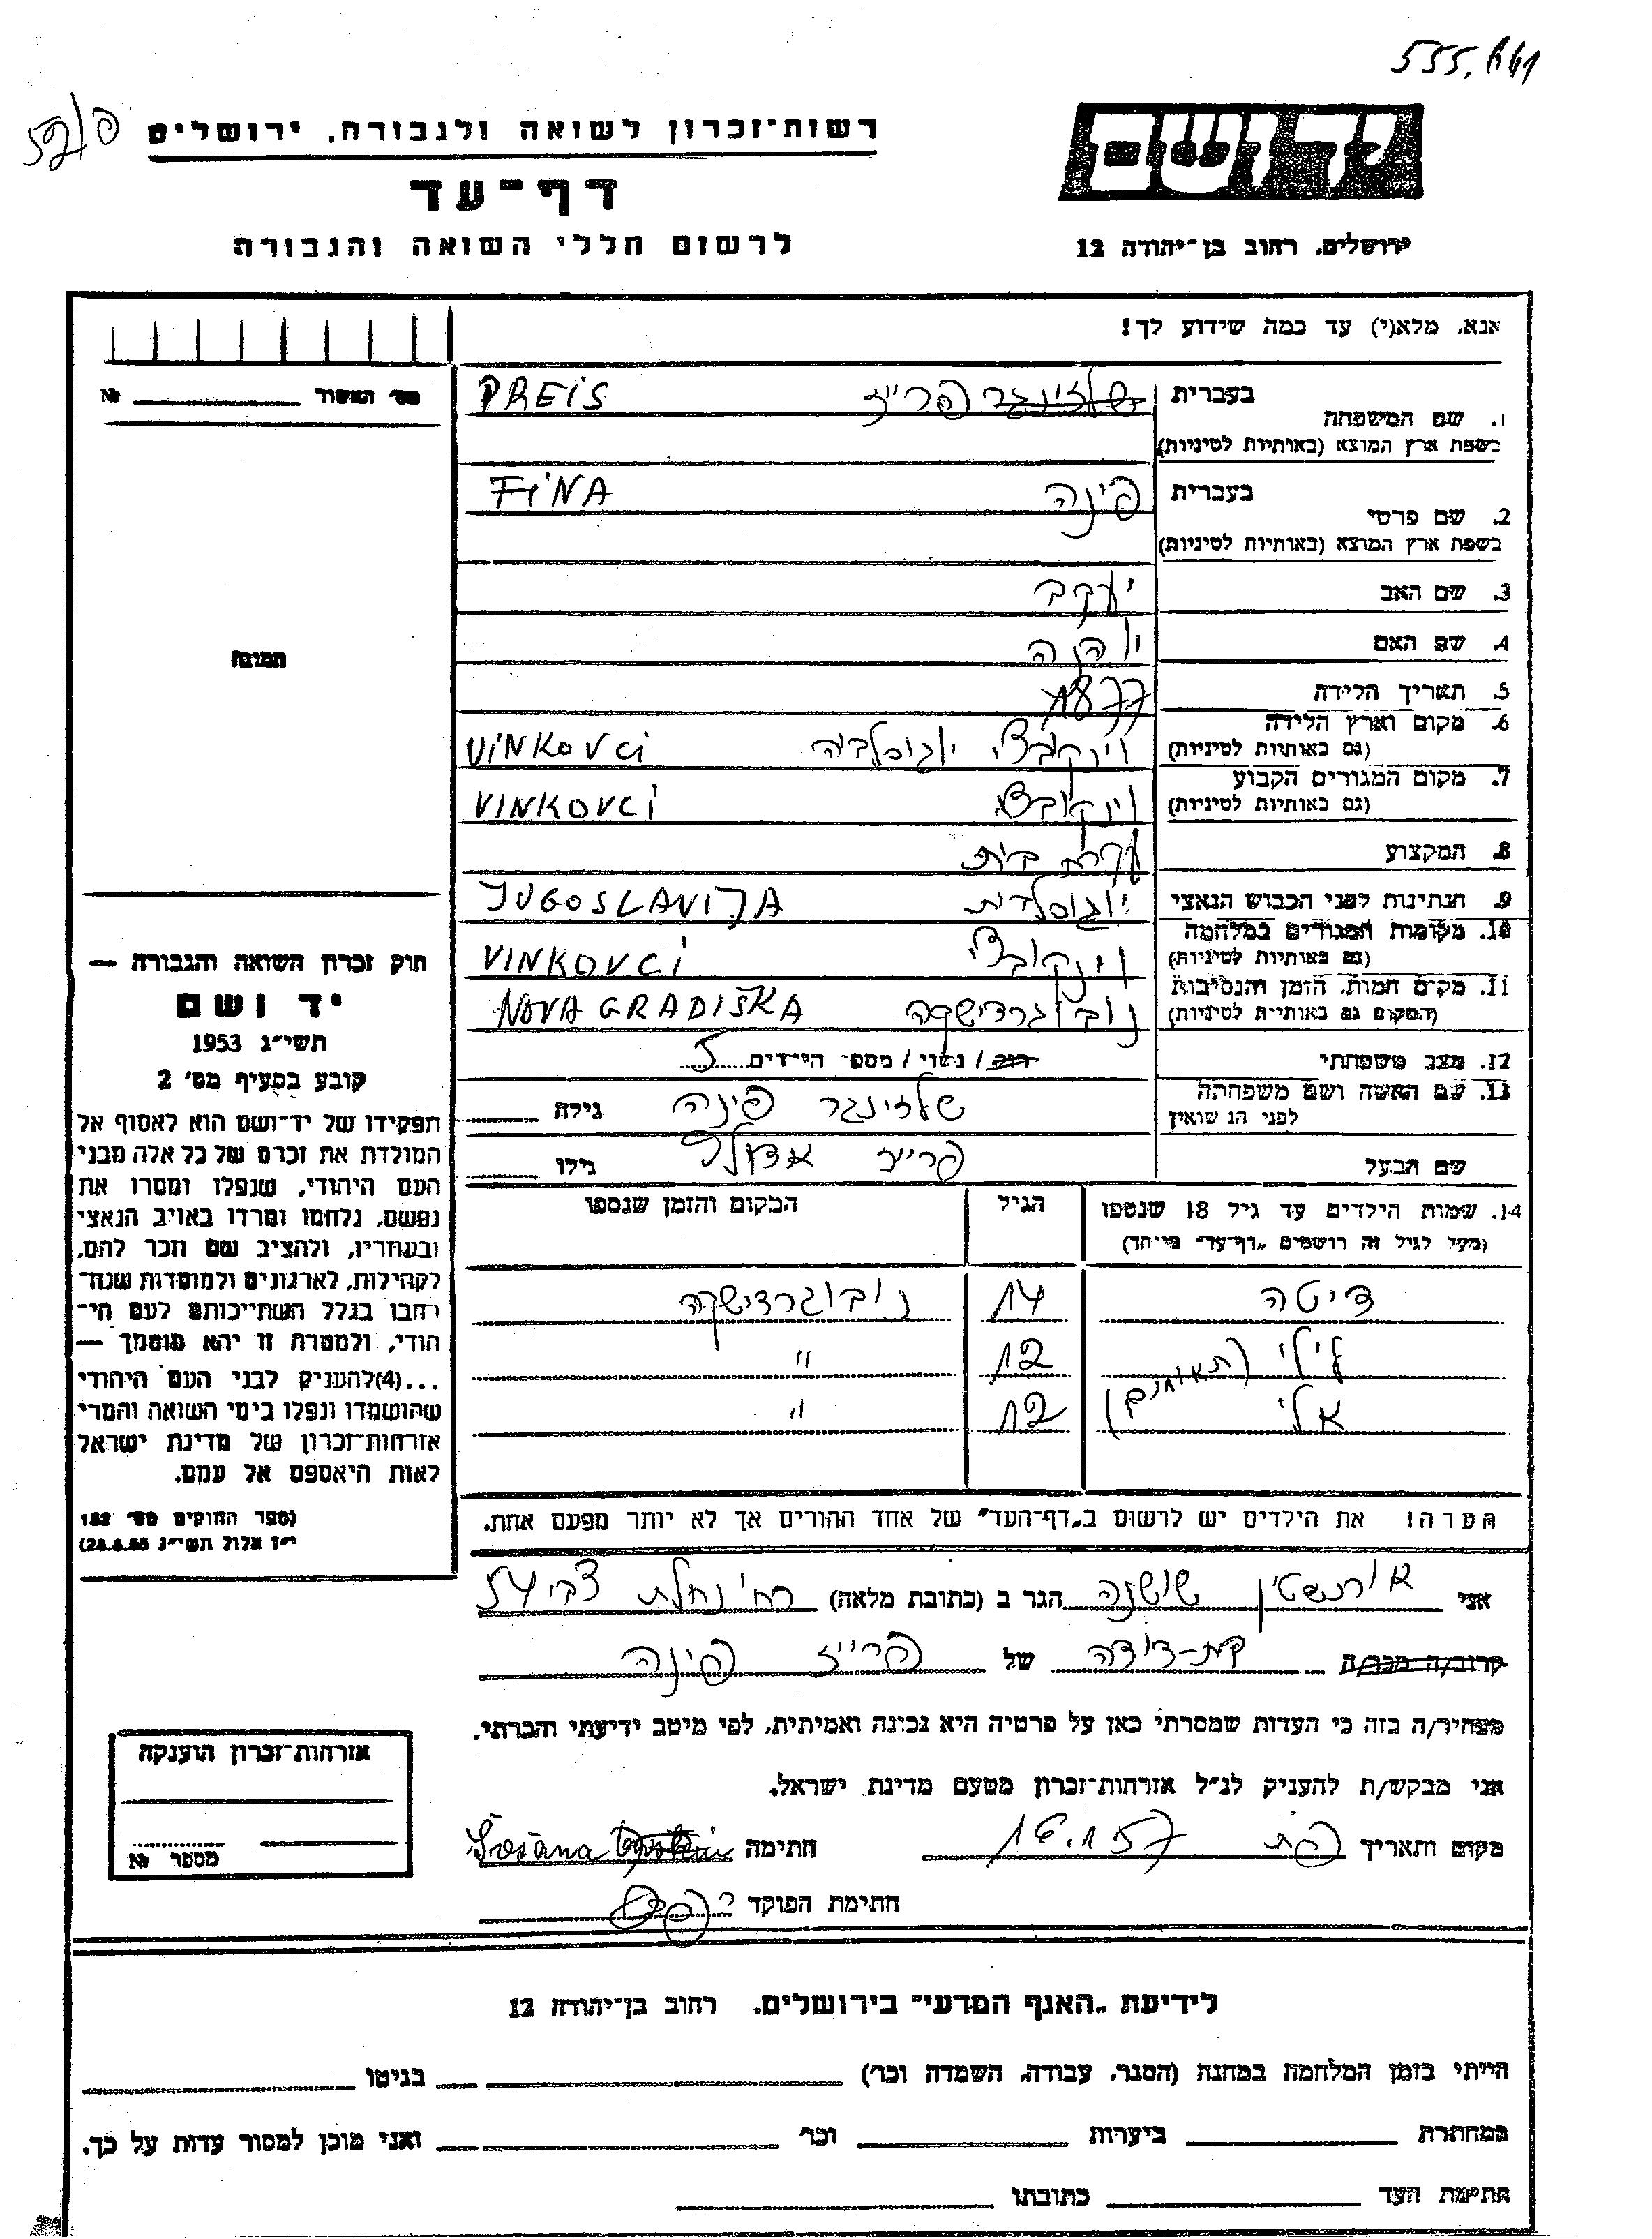 555.661
52/0
יד ושם
רשות־זכרון לשואה ולגבורה, ירושלים
דף־עד
לרשום חללי השואה והגבורה
ירושלים, רחוב בן־יהודה 12
אנא, מלא(י) עד כמה שידוע לך!
מס׳ האשור № 
1. שם המשפחה בעברית שלזינגר פרייז PREIS
בשפת ארץ המוצא (באותיות לטיניות)
2. שם פרטי בעברית פינה FINA
בשפת ארץ המוצא (באותיות לטיניות)
3. שם האב יעקב
4. שם האם יוהנה
תמונה
5. תאריך הלידה 1877
6. מקום וארץ הלידה וינקובצי יוגוסלביה VINKOVCI
(גם באותיות לטיניות)
7. מקום המגורים הקבוע וינקובצי VINKOVCI
(גם באותיות לטיניות)
8. המקצוע עקרת בית
9. הנתינות לפני הכבוש הנאצי יוגוסלבית JUGOSLAVIJA
10. מקומות המגורים במלחמה וינקובצי VINKOVCI
(גם באותיות לטיניות)
11. מקום המות, הזמן והנסיבות נובוגרדישקה NOVA GRADIŠKA
(המקום גם באותיות לטיניות)
12. מצב משפחתי רווק / נשוי / מספר הילדים 5
13. שם האשה ושם משפחתה שלזינגר פינה גילה
לפני הנישואין
שם הבעל פרייז אדולף גילו
14. שמות הילדים עד גיל 18 שנספו הגיל המקום והזמן שנספו
(מעל לגיל זה רושמים „דף־עד” מיוחד)
דיטה 14 נובוגרדישקה
לילי (תאומים) 12 "
אלי 12 "
הערה! את הילדים יש לרשום ב„דף־העד” של אחד ההורים אך לא יותר מפעם אחת.
חוק זכרון השואה והגבורה —
יד ושם
תשי״ג 1953
קובע בסעיף מס׳ 2
תפקידו של יד־ושם הוא לאסוף אל
המולדת את זכרם של כל אלה מבני
העם היהודי, שנפלו ומסרו את
נפשם, נלחמו ומרדו באויב הנאצי
ובעוזריו, ולהציב שם וזכר להם,
לקהילות, לארגונים ולמוסדות שנח־
רבו בגלל השתייכותם לעם הי־
הודי, ולמטרת זו יהא מוסמך —
...(4)להעניק לבני העם היהודי
שהושמדו ונפלו בימי השואה והמרי
אזרחות־זכרון של מדינת ישראל
לאות היאספם אל עמם.
(ספר החוקים מס׳ 132
י״ז אלול תשי״ג 28.8.53)
אני אורנשטיין שושנה הגר ב (כתובת מלאה) רח׳ נחלת צבי 54
קרוב/ה מכר/ה בת-דודה של פרייז פינה
מצהיר/ה בזה כי העדות שמסרתי כאן על פרטיה היא נכונה ואמיתית, לפי מיטב ידיעתי והכרתי.
אני מבקש/ת להעניק לנ״ל אזרחות־זכרון מטעם מדינת ישראל.
מקום ותאריך פת 16.1.57 חתימה Šošana
חתימת הפוקד
אזרחות־זכרון הוענקה
מספר №
לידיעת „האגף המדעי” בירושלים, רחוב בן־יהודה 12
הייתי בזמן המלחמה במחנה (הסגר, עבודה, השמדה וכו׳) בגיטו
במחתרת ביערות וכו׳ ואני מוכן למסור עדות על כך.
חתימת העד כתובתו